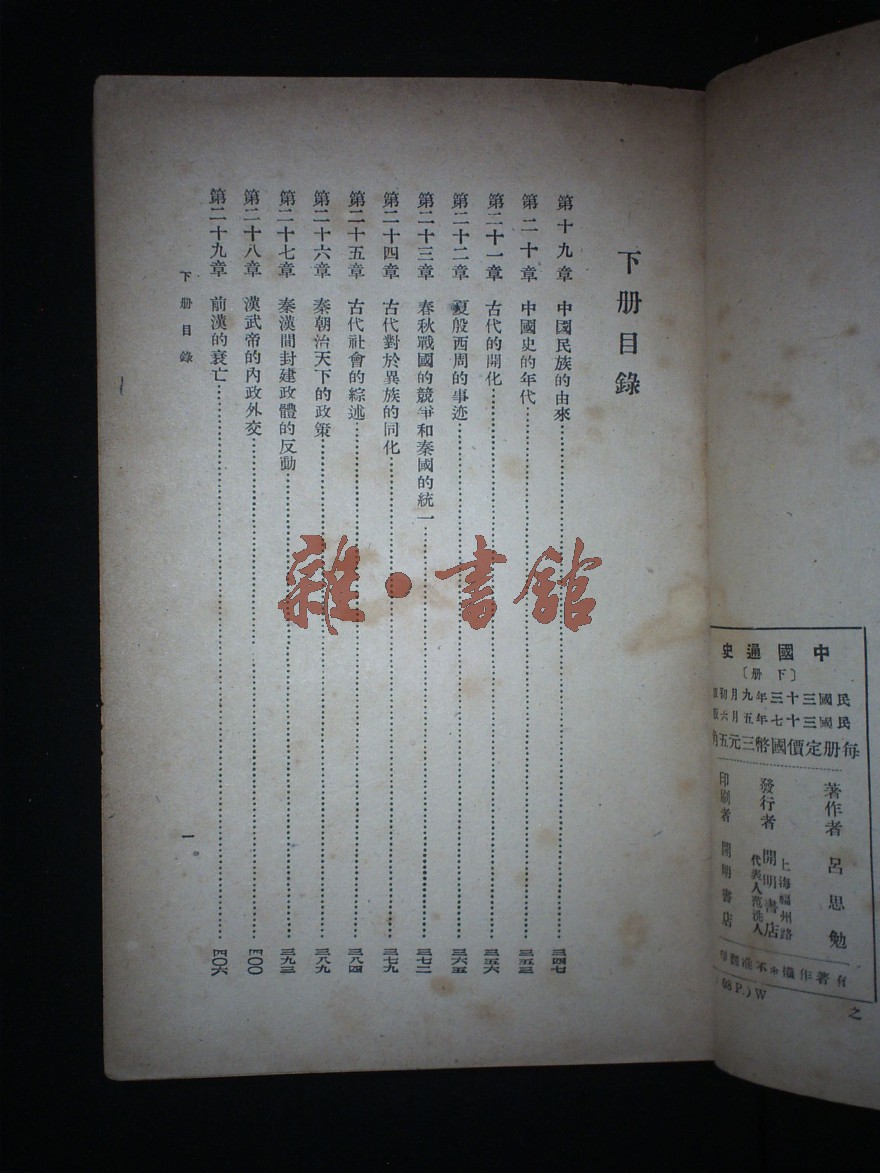 下册目錄
第十九章 中國民族的由來……三四七
第二十章 中國史的年代……三五三
第二十一章 古代的開化……三五六
第二十二章 夏殷西周的事迹……三六五
第二十三章 春秋戰國的競爭和秦國的統一……三七二
第二十四章 古代對於異族的同化……三七九
第二十五章 古代社會的綜述……三八四
第二十六章 秦朝治天下的政策……三八九
第二十七章 秦漢間封建政體的反動……三九三
第二十八章 漢武帝的內政外交……四〇〇
第二十九章 前漢的衰亡……四〇六
下册目錄
一
雜·書館
中國通史
〔下册〕
民國三十三年九月初
民國三十七年五月六
每册定價國幣三元五角
著作者 呂思勉
發行者 開明書店
上海福州路
代表人范洗人
印刷者 開明書店
有著作權＊不准翻
08 P.) W
之